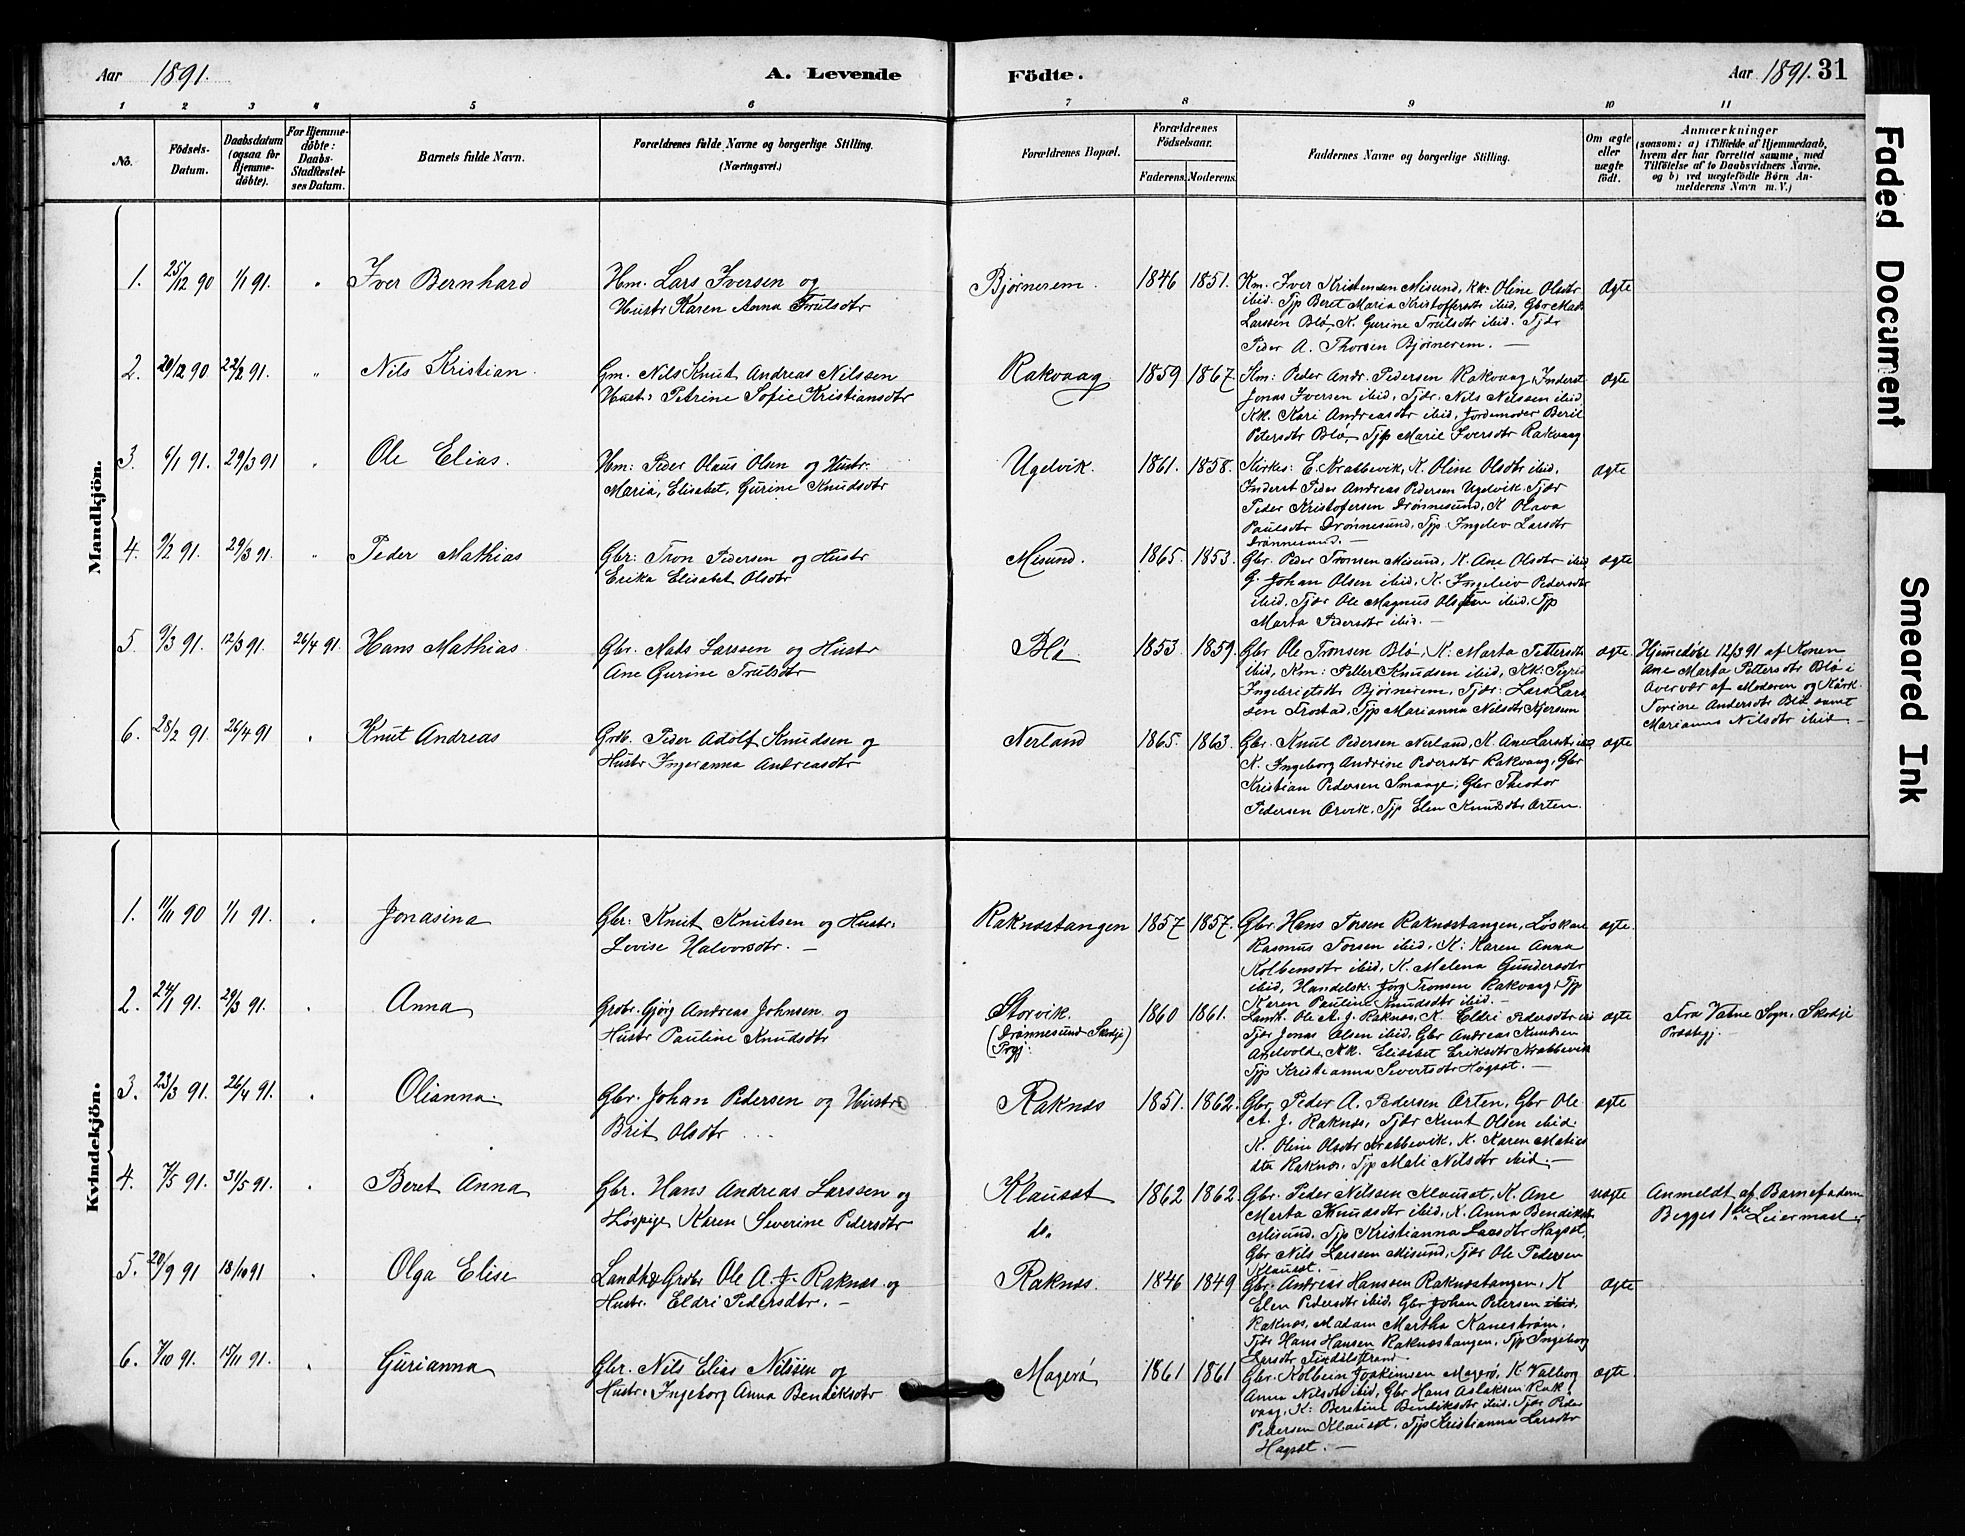 Aar 1891. A. Levende Födte. Aar 1891. 31
1 2 3 4 5 6 7 8 9 10 11
No.
Födsels-
Datum.
Daabsdatum
(ogsaa for
Hjemme-
döbte).
For Hjemme-
döbte:
Daabs-
Stadfæstel-
ses Datum.
Barnets fulde Navn.
Forældrenes fulde Navne og borgerlige Stilling.
(Næringsvei.)
Forældrenes Bopæl.
Forældrenes
Födselsaar.
Faderens. Moderens.
Faddernes Navne og borgerlige Stilling.
Om ægte
eller
uægte
födt.
Anmærkninger
(saasom: a) i Tilfælde af Hjemmedaab,
hvem der har forrettet samme, med
Tilföielse af to Daabsvidners Navne.
og b) ved uægtefödte Börn An-
melderens Navn m. V.)
Mandkjön.
1. 25/12 90 1/1 91. " Iver Bernhard
Hm. Lars Iversen og
Hustr Karen Anna Trulsdtr
Bjørnerem 1846 1851.
Km. Iver Kristensen Misund, KK: Oline Olsdtr
ibid. Tjp Beret Maria Kristoffersdtr ibid, Gbr Mads
Larssen Blø, K. Gurine Trulsdtr ibid. Tjdr
Peder A. Thorsen Bjørnerem. —
ægte
2. 20/12 90 22/2 91. " Nils Kristian.
Gm. Nils Knut Andreas Nilssen
Hust: Petrine Sofie Kristiansdtr
Rakvaag 1859 1867.
Km: Peder Andr. Pedersen Rakvaag, Inderst
Jonas Iversen ibid, Tjdr. Nils Nilssen ibid
KK. Kari Andreasdtr ibid, Jordemoder Beril
Petersdtr Blø, Tjp Marie Iversdtr Rakvaag
ægte
3. 6/1 91. 29/3 91 " Ole Elias.
Hm: Peder Olaus Olsen og Hustr.
Maria, Elisabet, Gurine Knudsdtr
Ugelvik. 1861. 1858.
Kirkes: E. Krabbevik, K. Oline Olsdtr ibid,
Inderst Peder Andreas Pedersen Ugelvik. Tjdr
Peder Kristofersen Drønnesund, K Olava
Paulsdtr Drønnesund, Tjp. Ingelev Larsdtr
Drønnesund. —
ægte
4. 9/2 91. 29/3 91. " Peder Mathias
Gbr: Tron Pedersen og Hustr
Erika Elisabet Olsdtr
Misund. 1865. 1853.
Gbr. Peder Tronsen Misund, K. Ane Olsdtr ibid
G. Johan Olsen ibid, K. Ingeleiv Pedersdtr
ibid, Tjdr Ole Magnus Olsen ibid, Tjp
Marta Pedersdtr ibid. —
ægte
5. 9/3 91. 12/3 91. 26/4 91. Hans Mathias
Gbr. Mads Larssen og Hustr
Ane Gurine Trulsdtr
Blø 1853. 1859.
Gbr Ole Tronsen Blø, K. Marta Pettersdtr
ibid, Km: Petter Knudsen ibid, KK: Sigrid
Ingebrigtsdtr Bjørnerem, Tjdr: Lars Lars
sen Frostad, Tjp Marianna Nilsdtr Kjersem
ægte
Hjemedøbt 12/3 91 af Konen
Ane Marta Pettersdtr Blø i
Overvær af Moderen og Kårk.
Torine Andersdtr Blø samt
Marianna Nilsdtr ibid —
6. 28/2 91. 26/4 91 " Knut Andreas
Grdb. Peder Adolf Knudsen og
Hustr Ingeranna Andreasdtr
Nerland 1865. 1863.
Gbr. Knut Pedersen Nerland, K. Ane Larsdtr ibid
K. Ingeborg Andrine Pedersdtr Rakvaag, Gbr
Kristian Pedersen Smaage, Gbr Theodor
Pedersen Orvik, Tjp Elen Knudsdtr Orten.
ægte
Kvindekjön.
1. 11/11 90 1/1 91. " Jonasina
Gbr: Knut Knutsen og Hustr:
Lovise Halvorsdtr. —
Raknæstangen 1857 1857.
Gbr. Hans Torsen Raknæstangen, Løskar
Rasmus Torsen ibid, K: Karen Anna
Kolbensdtr ibid, K. Malena Gundersdtr
ibid, Handelsk. Jørg Tronsen Rakvaag, Tjp
Karen Pauline Knudsdtr ibid. —
ægte.
2. 24/1 91. 29/3 91. " Anna
Grdbr. Gjørg Andreas Johnsen og
Hustr Pauline Knudsdtr
Storvik.
(Drønnesund Skodje)
Prgj:
1860 1861.
Landh. Ole A. J. Raknæs, K. Eldri Pedersdtr ibid
Tjdr Jonas Olsen ibid, Gbr Andreas Knutsen
KK. Elisabet Eriksdtr Krabbevik
Tjp Kristianna Sivertsdtr Hogset. —
ægte
Fra Vatne Sogn, Skodje
Præstgj.
3. 23/3 91. 26/4 91. " Olianna
Gbr. Johan Pedersen og Hustr
Brit Olsdtr
Raknæs 1851. 1862.
Gbr Peder A. Pedersen Orten, Gbr Ole
A. J. Raknæs, Tjdr Knut Olsen ibid
K. Oline Olsdtr Krabbevik, K. Karen Matias
dtr Raknæs, Tjp Mali Nilsdtr ibid. —
ægte
4. 7/5 91. 31/5 91. " Beret Anna
Gbr. Hans Andreas Larssen og
Løspige Karen Severine Pedersdtr
Klauset
do.
1862 1862.
Gbr. Peder Nilssen Klauset, K. Ane
Marta Knudsdtr ibid, K. Anna Bendiksdtr
Misund, Tjp Kristianna Larsdtr Hagset,
Gbr Nils Larssen Misund, Tjdr Ole Pedersen
Klauset. —
uægte
Anmeldt af Barnefaderen
Begges 1ste Leiermaal.
5. 20/9 91 18/10 91 " Olga Elise
Landh & Grdbr Ole A. J. Raknæs og
Hustr. Eldri Pedersdtr. —
Raknæs. 1846 1849
Gbr. Andreas Hanssen Raknæstangen, K
Elen Pedersdtr ibid, Gbr Johan Petersen ibid,
Raknæs, Madam Martha Kanestrøm,
Tjdr Hans Hansen Raknæstangen, Tjp Ingeborg
Larsdtr
ægte
6. 7/10 91. 15/11 91. " Gurianna
Gbr. Nils Elias Nilssen og
Hustr. Ingeborg Anna Bendiksdtr
Magerø 1861 1861
Gbr. Kolbein Joakimsen Magerø, K Valborg
Anna Nilsdtr ibid, Gbr Hans Aslaksen Rak
vaag, K: Beretine Bendiksdtr ibid, Tjdr Peder
Pedersen Klauset, Tjp Kristianna Larsdtr
Hagset. —
ægte.
Faded Document
Smeared Ink